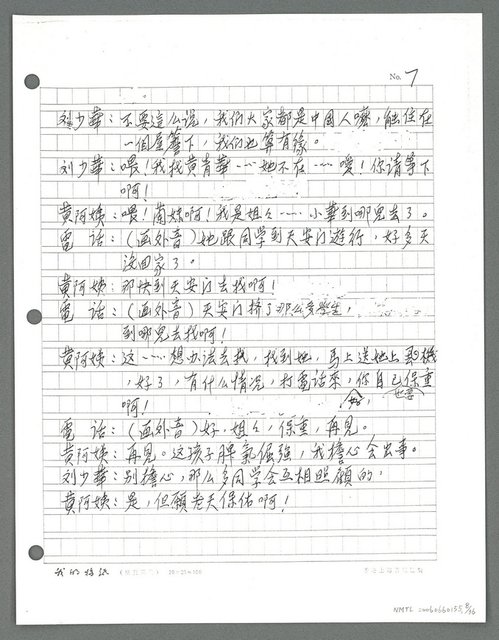 No. 7
刘少華：不要這么说，我们大家都是中国人嘛，能住在
一個屋簷下，我们也算有缘。
刘少華：喂！我找黄青華……她不在……噯！你请等下
啊！
黄阿姨：喂！茵妹啊！我是姐々……小華到哪兒去了。
電　話：（画外音）她跟同学到天安门遊行，好多天
没回家了。
黄阿姨：那快到天安门去找啊！
電　話：（画外音）天安门挤了那么多学生，
到哪兒去找啊！
黄阿姨：这……想办法去找，找到她，馬上送她上飛機
，好了，有什么情况，打電话來，你自己保重
也要
啊！
電　話：（画外音）好，姐々，保重，再見。
黄阿姨：再見。这孩子脾氣倔強，我擔心会出事。
刘少華：别擔心，那么多同学会互相照顧的，
黄阿姨：是，但願老天保佑啊！
我的
20×25=500
NMTL 20060660155